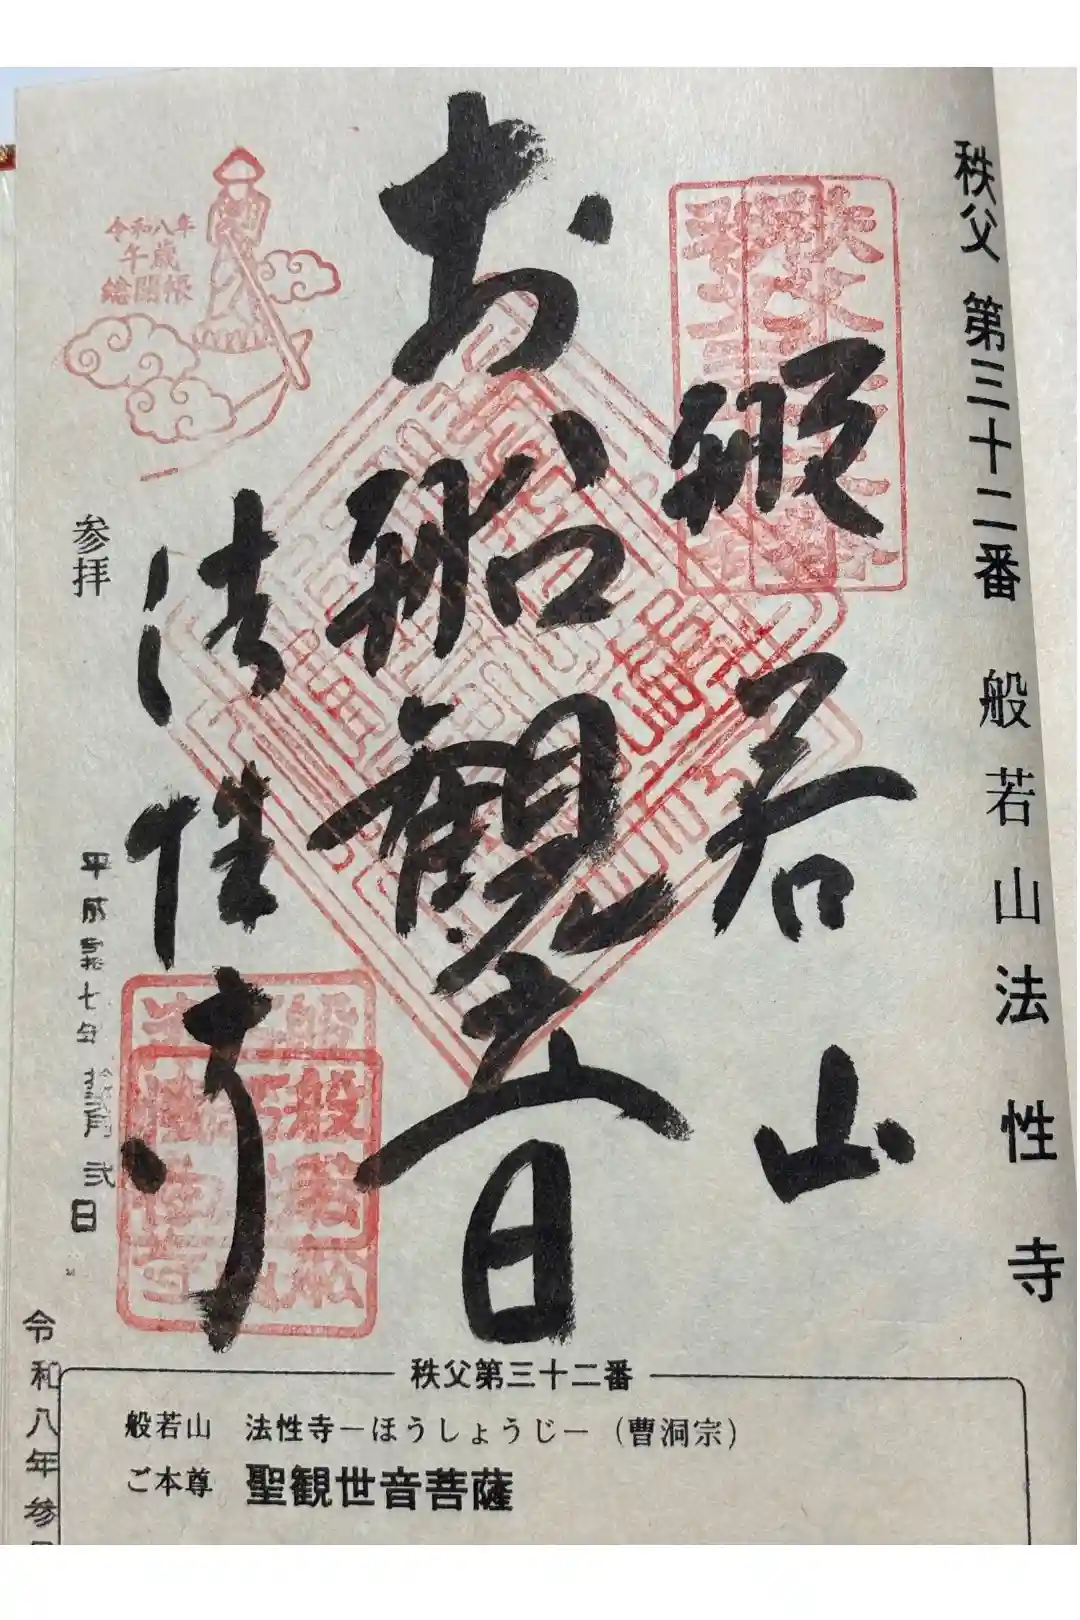 秩父 第三十二番 般若山法性寺
般若山
お船観音
法性寺
令和八年
午歳
総開帳
参拝
平成 七年 弐日
般若
令和八年参
秩父第三十二番
般若山 法性寺－ほうしょうじ－（曹洞宗）
ご本尊 聖観世音菩薩